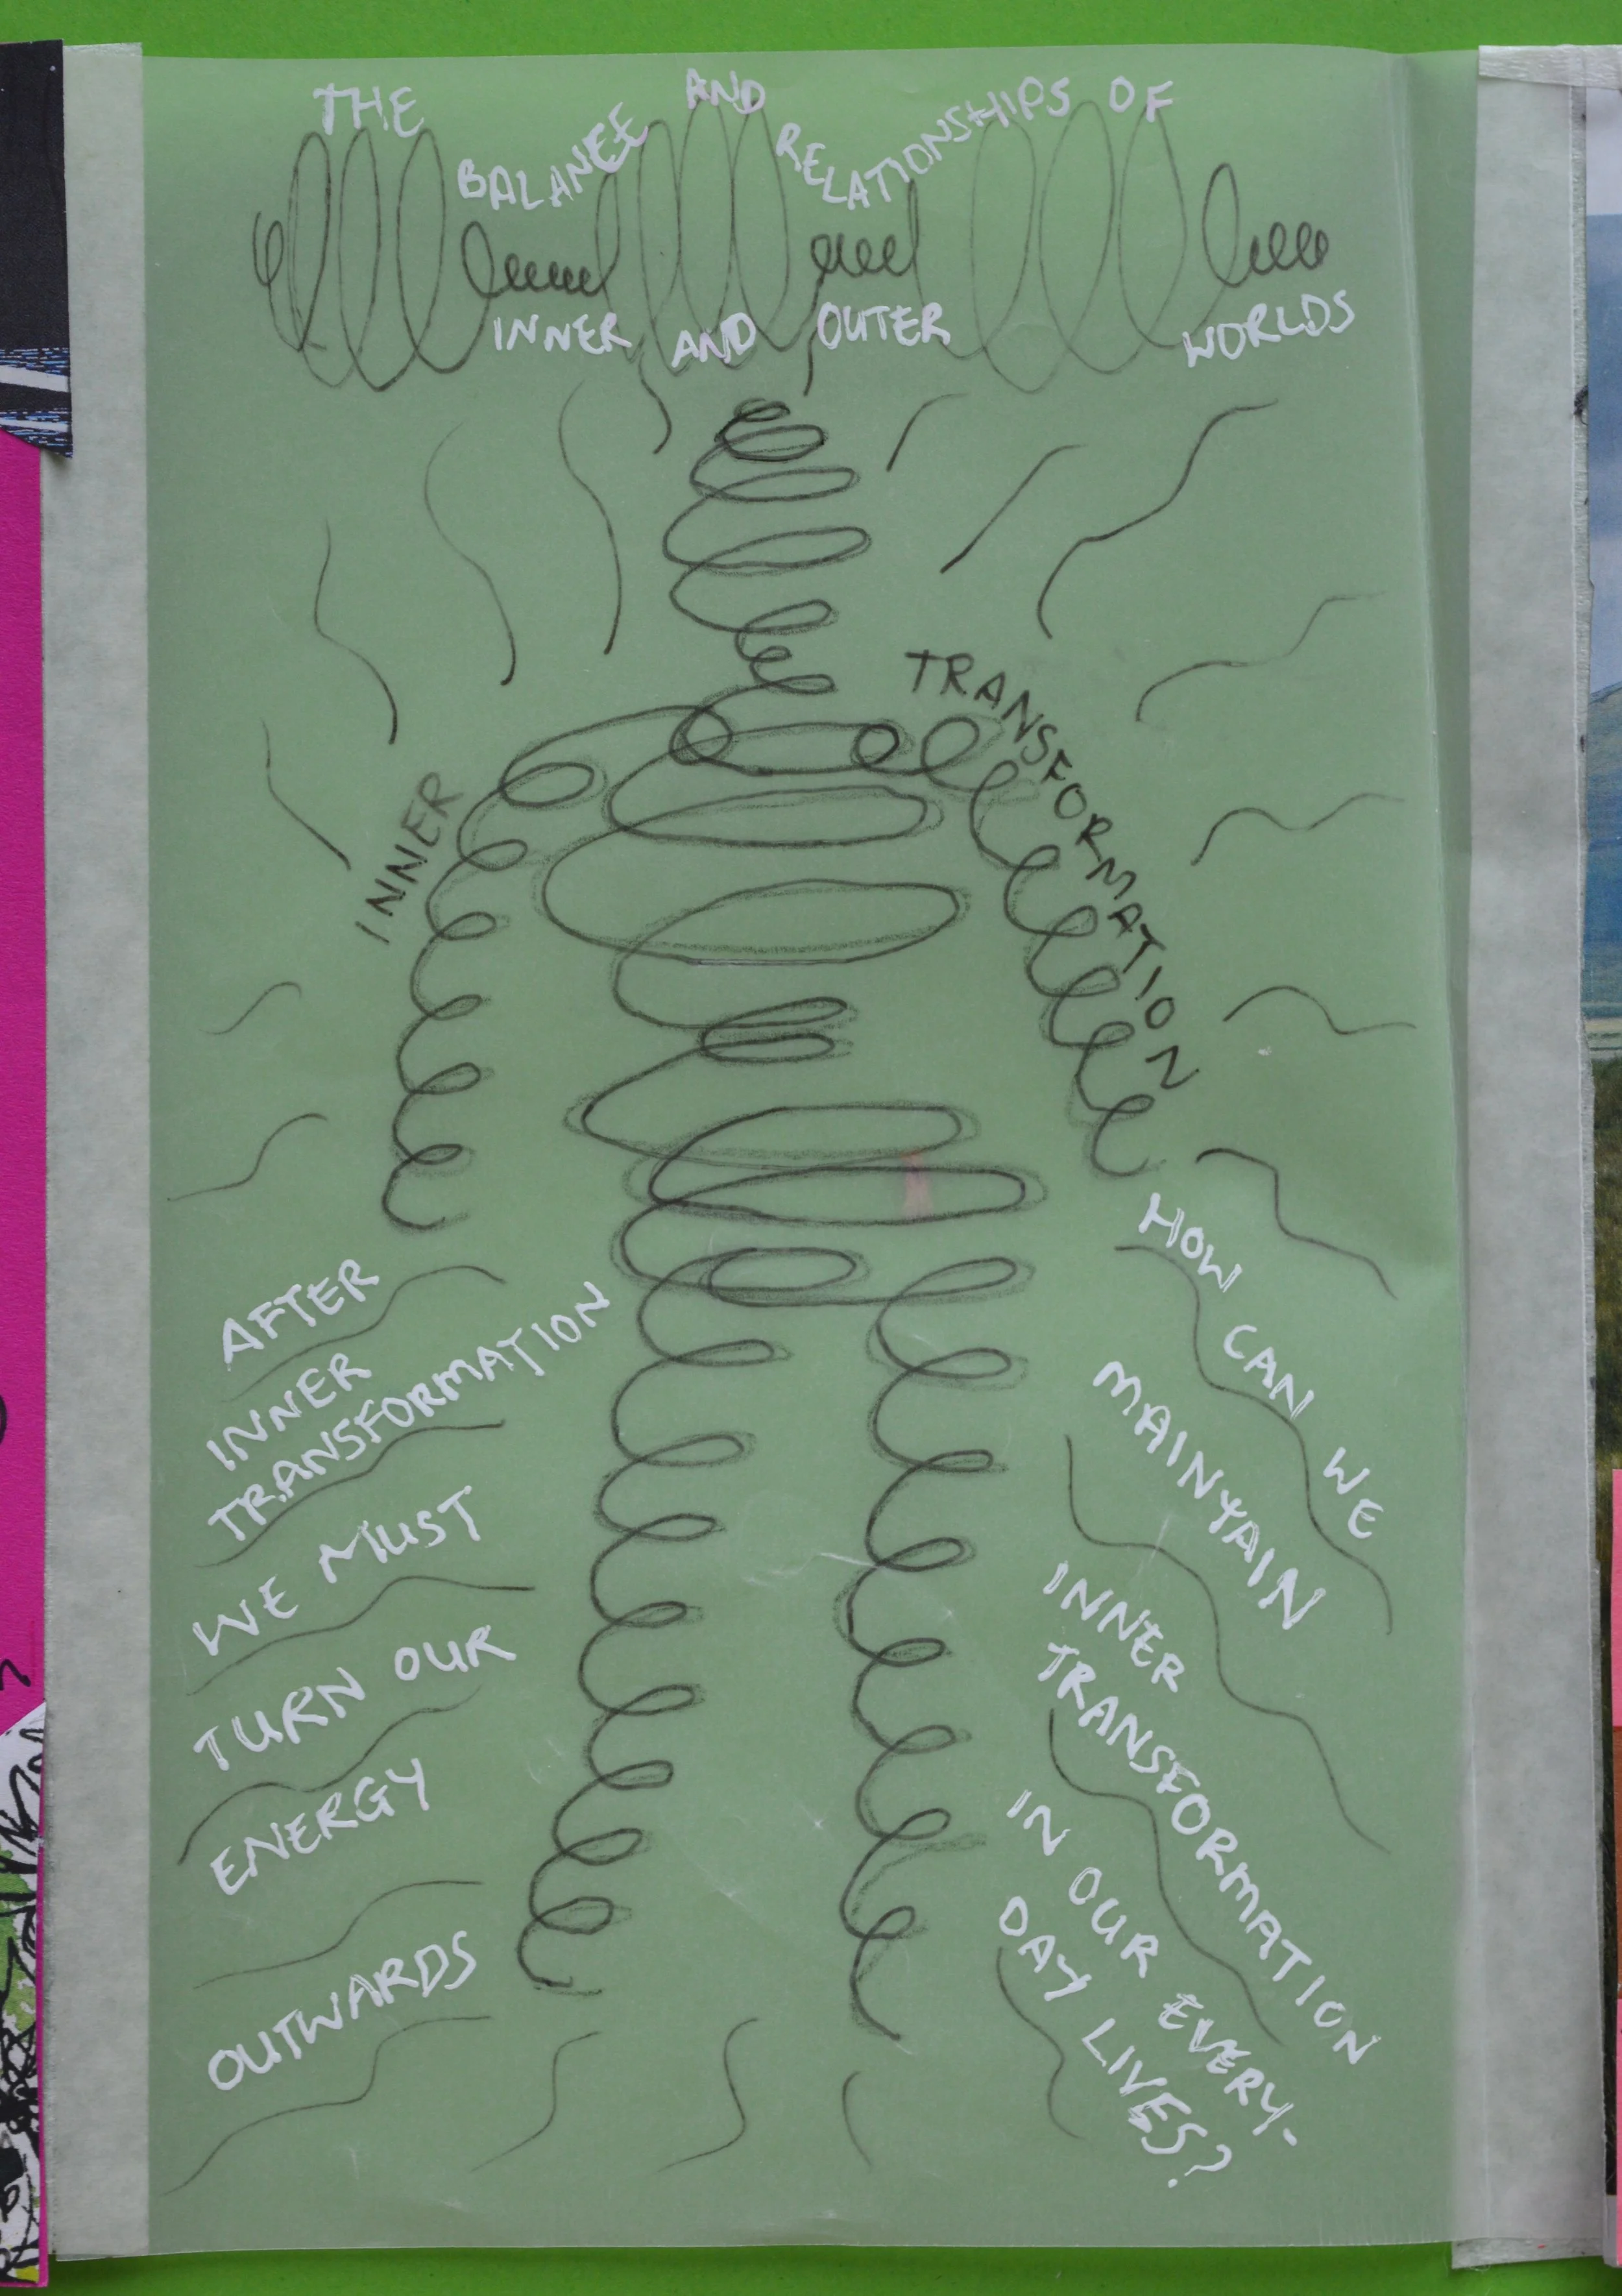 THE BALANCE AND RELATIONSHIPS OF
INNER AND OUTER WORLDS
INNER
TRANSFORMATION
AFTER
INNER
TRANSFORMATION
WE MUST
TURN OUR
ENERGY
OUTWARDS
HOW CAN WE
MAINYAIN
INNER
TRANSFORMATION
IN OUR EVERY-
DAY LIVES?